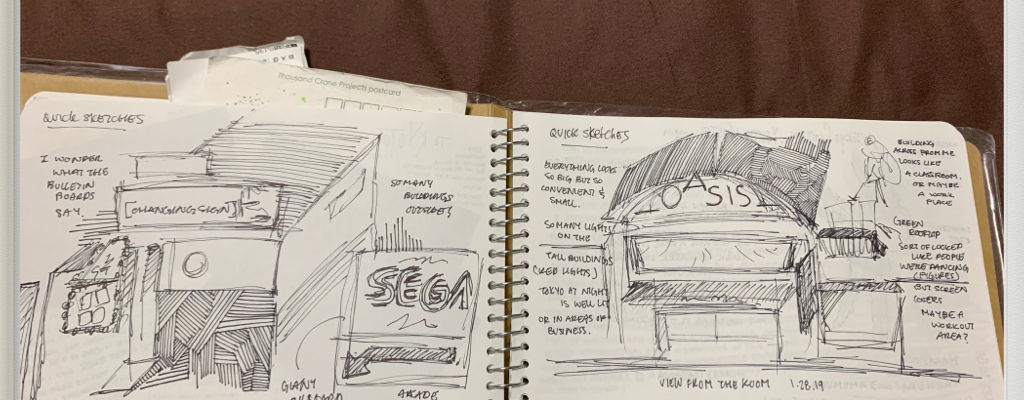 Thousand Crane Projects postcard
QUICK SKETCHES
I WONDER
WHAT THE
BULLETIN
BOARDS
SAY
[CHANGING SIGN]
SO MANY
BUILDINGS
OUTSIDE!
SEGA
GIANT
ARCADE
QUICK SKETCHES
EVERYTHING LOOKS
SO BIG BUT SO
CONVENIENT &
SMALL.
SO MANY LIGHTS
ON THE
TALL BUILDINGS
(RED LIGHTS)
TOKYO AT NIGHT
IS WELL LIT
OR IN AREAS OF
BUSINESS.
OASIS
BUILDING
ACROSS FROM ME
LOOKS LIKE
A CLASSROOM.
OR MAYBE
A WORK
PLACE
GREEN
ROOFTOP
SORT OF LOOKED
LIKE PEOPLE
WERE DANCING
(FIGURES)
BUT SCREEN
COVERS
MAYBE A
WORKOUT
AREA?
VIEW FROM THE ROOM 1.28.19